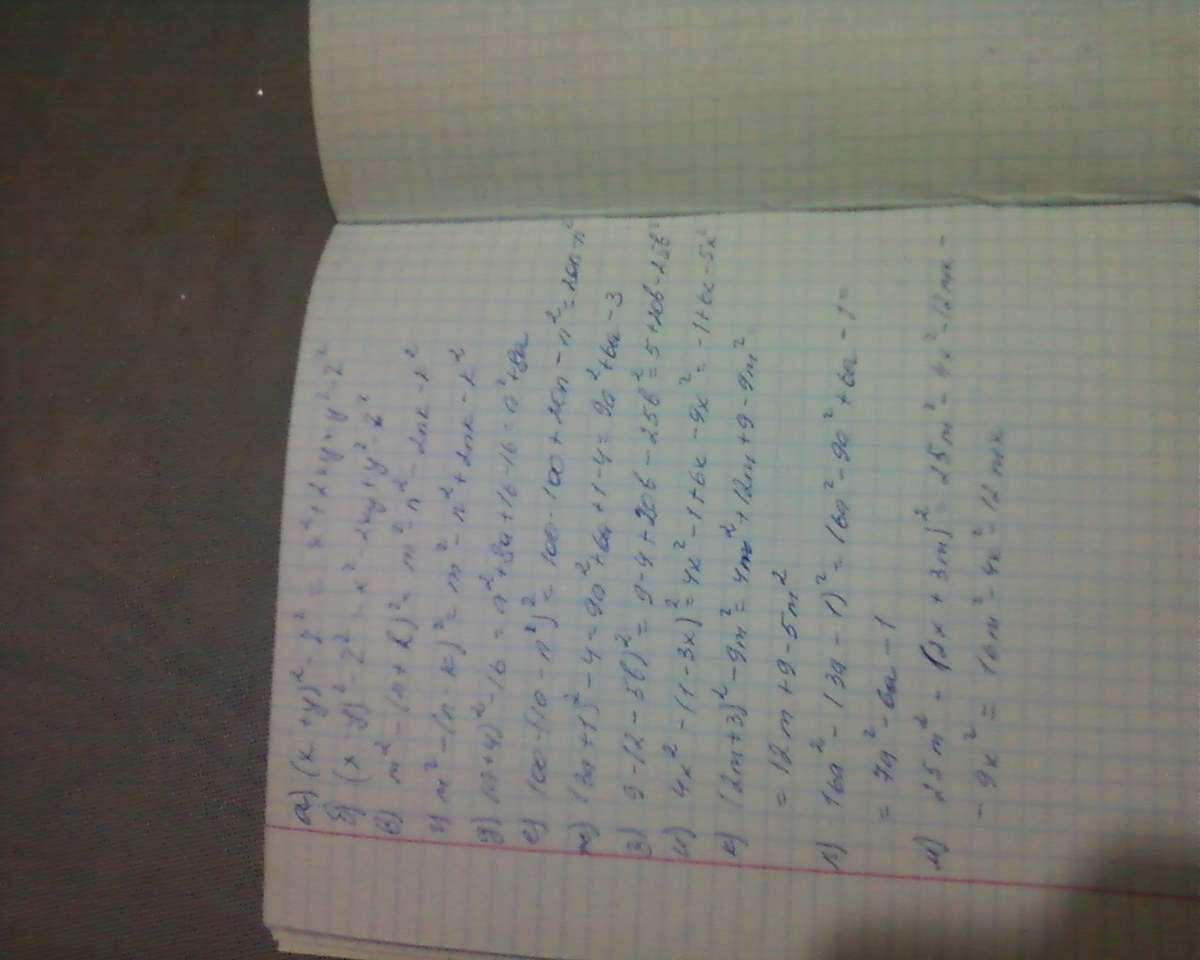 а) (x + y)² - z² = x² + 2xy + y² - z²
б) (x - y)² - z² = x² - 2xy + y² - z²
в) m² - (n + k)² = m² - n² - 2nk - k²
г) m² - (n - k)² = m² - n² + 2nk - k²
д) (a + 4)² - 16 = a² + 8a + 16 - 16 = a² + 8a
е) 100 - (10 - n²)² = 100 - 100 + 20n - n² = 20n - n²
ж) (3a + 1)² - 4 = 9a² + 6a + 1 - 4 = 9a² + 6a - 3
з) 9 - (2 - 5b)² = 9 - 4 + 20b - 25b² = 5 + 20b - 25b²
и) 4x² - (1 - 3x)² = 4x² - 1 + 6x - 9x² = -1 + 6x - 5x²
к) (2m + 3)² - 9m² = 4m² + 12m + 9 - 9m² =
= 12m + 9 - 5m²
л) 16a² - (3a - 1)² = 16a² - 9a² + 6a - 1 =
= 7a² - 6a - 1
м) 25m² - (2x + 3m)² = 25m² - 4x² - 12mx -
- 9x² = 16m² - 4x² = 12mx